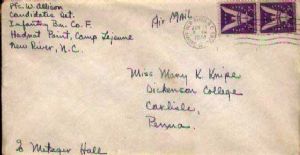 Pfc. W. Allison
Candidates' Det.
Infantry Bn. Co. F
Hadnot Point, Camp Lejeune
New River, N.C.
Air Mail
Miss Mary K. Knipe
Dickenson College
Carlisle,
Penna.
Metzger Hall